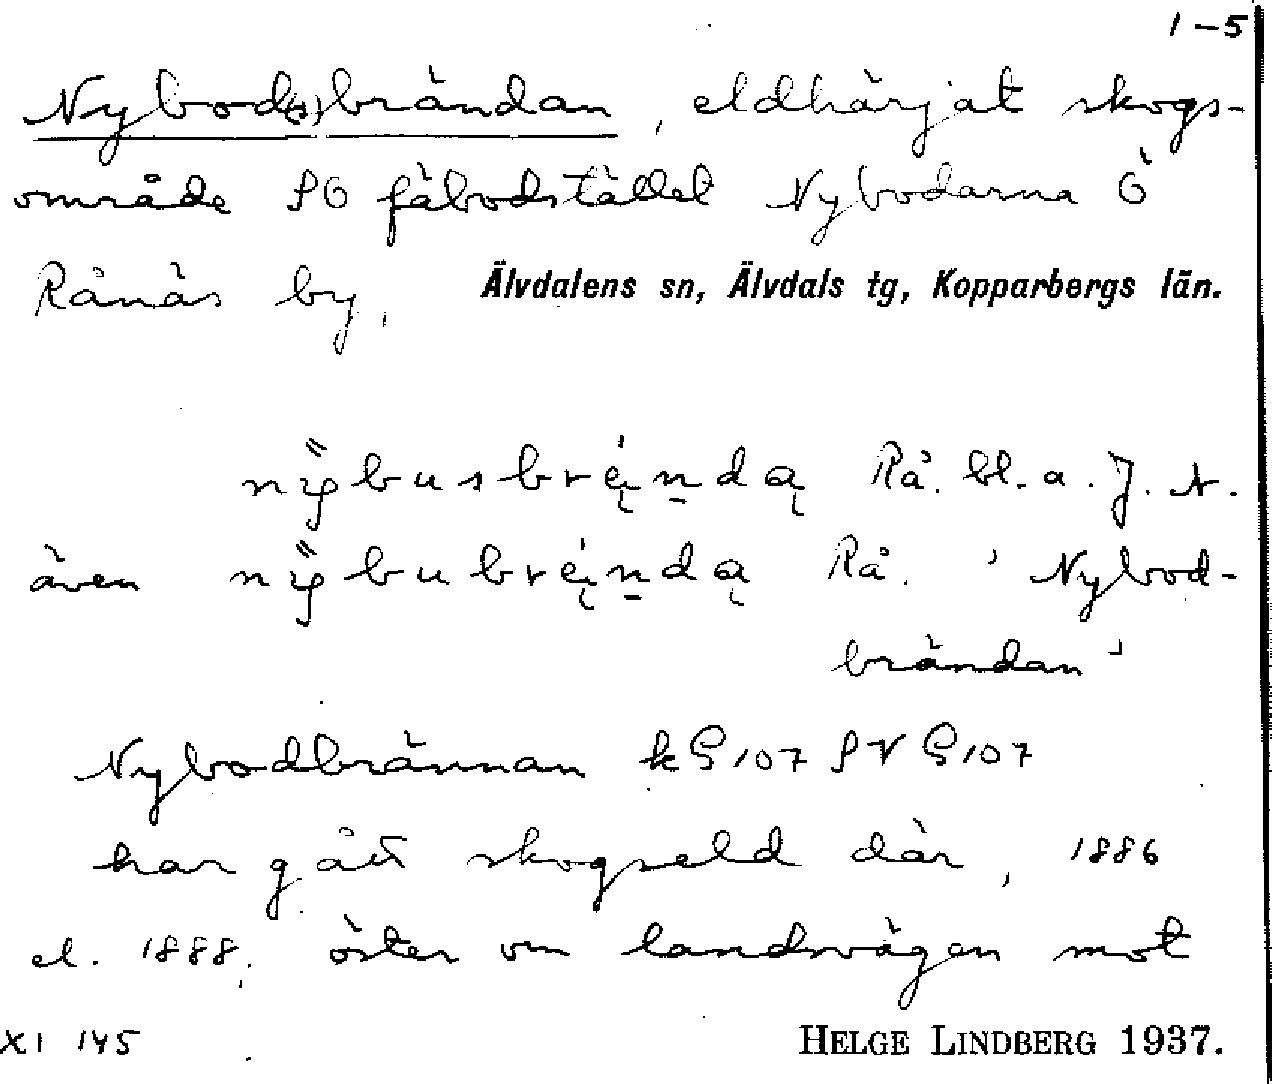 1-5
Nybod(s)brändan, eldhärjat skogs-
område SO fäbodstället Nybodarna Ö
Rånäs by, Älvdalens sn, Älvdals tg, Kopparbergs län.
nybusbrę́nda̧ Rå. bl.a. J. N.
även nybubrę́nda̧ Rå. 'Nybod-
brändan'
Nybodbrännan k § 107 SV § 107
har gått skogseld där, 1886
el. 1888, öster om landsvägen mot
XI 145 HELGE LINDBERG 1937.